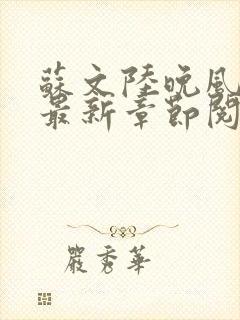 蘇文陸晚風
最新章節閱
嚴秀華